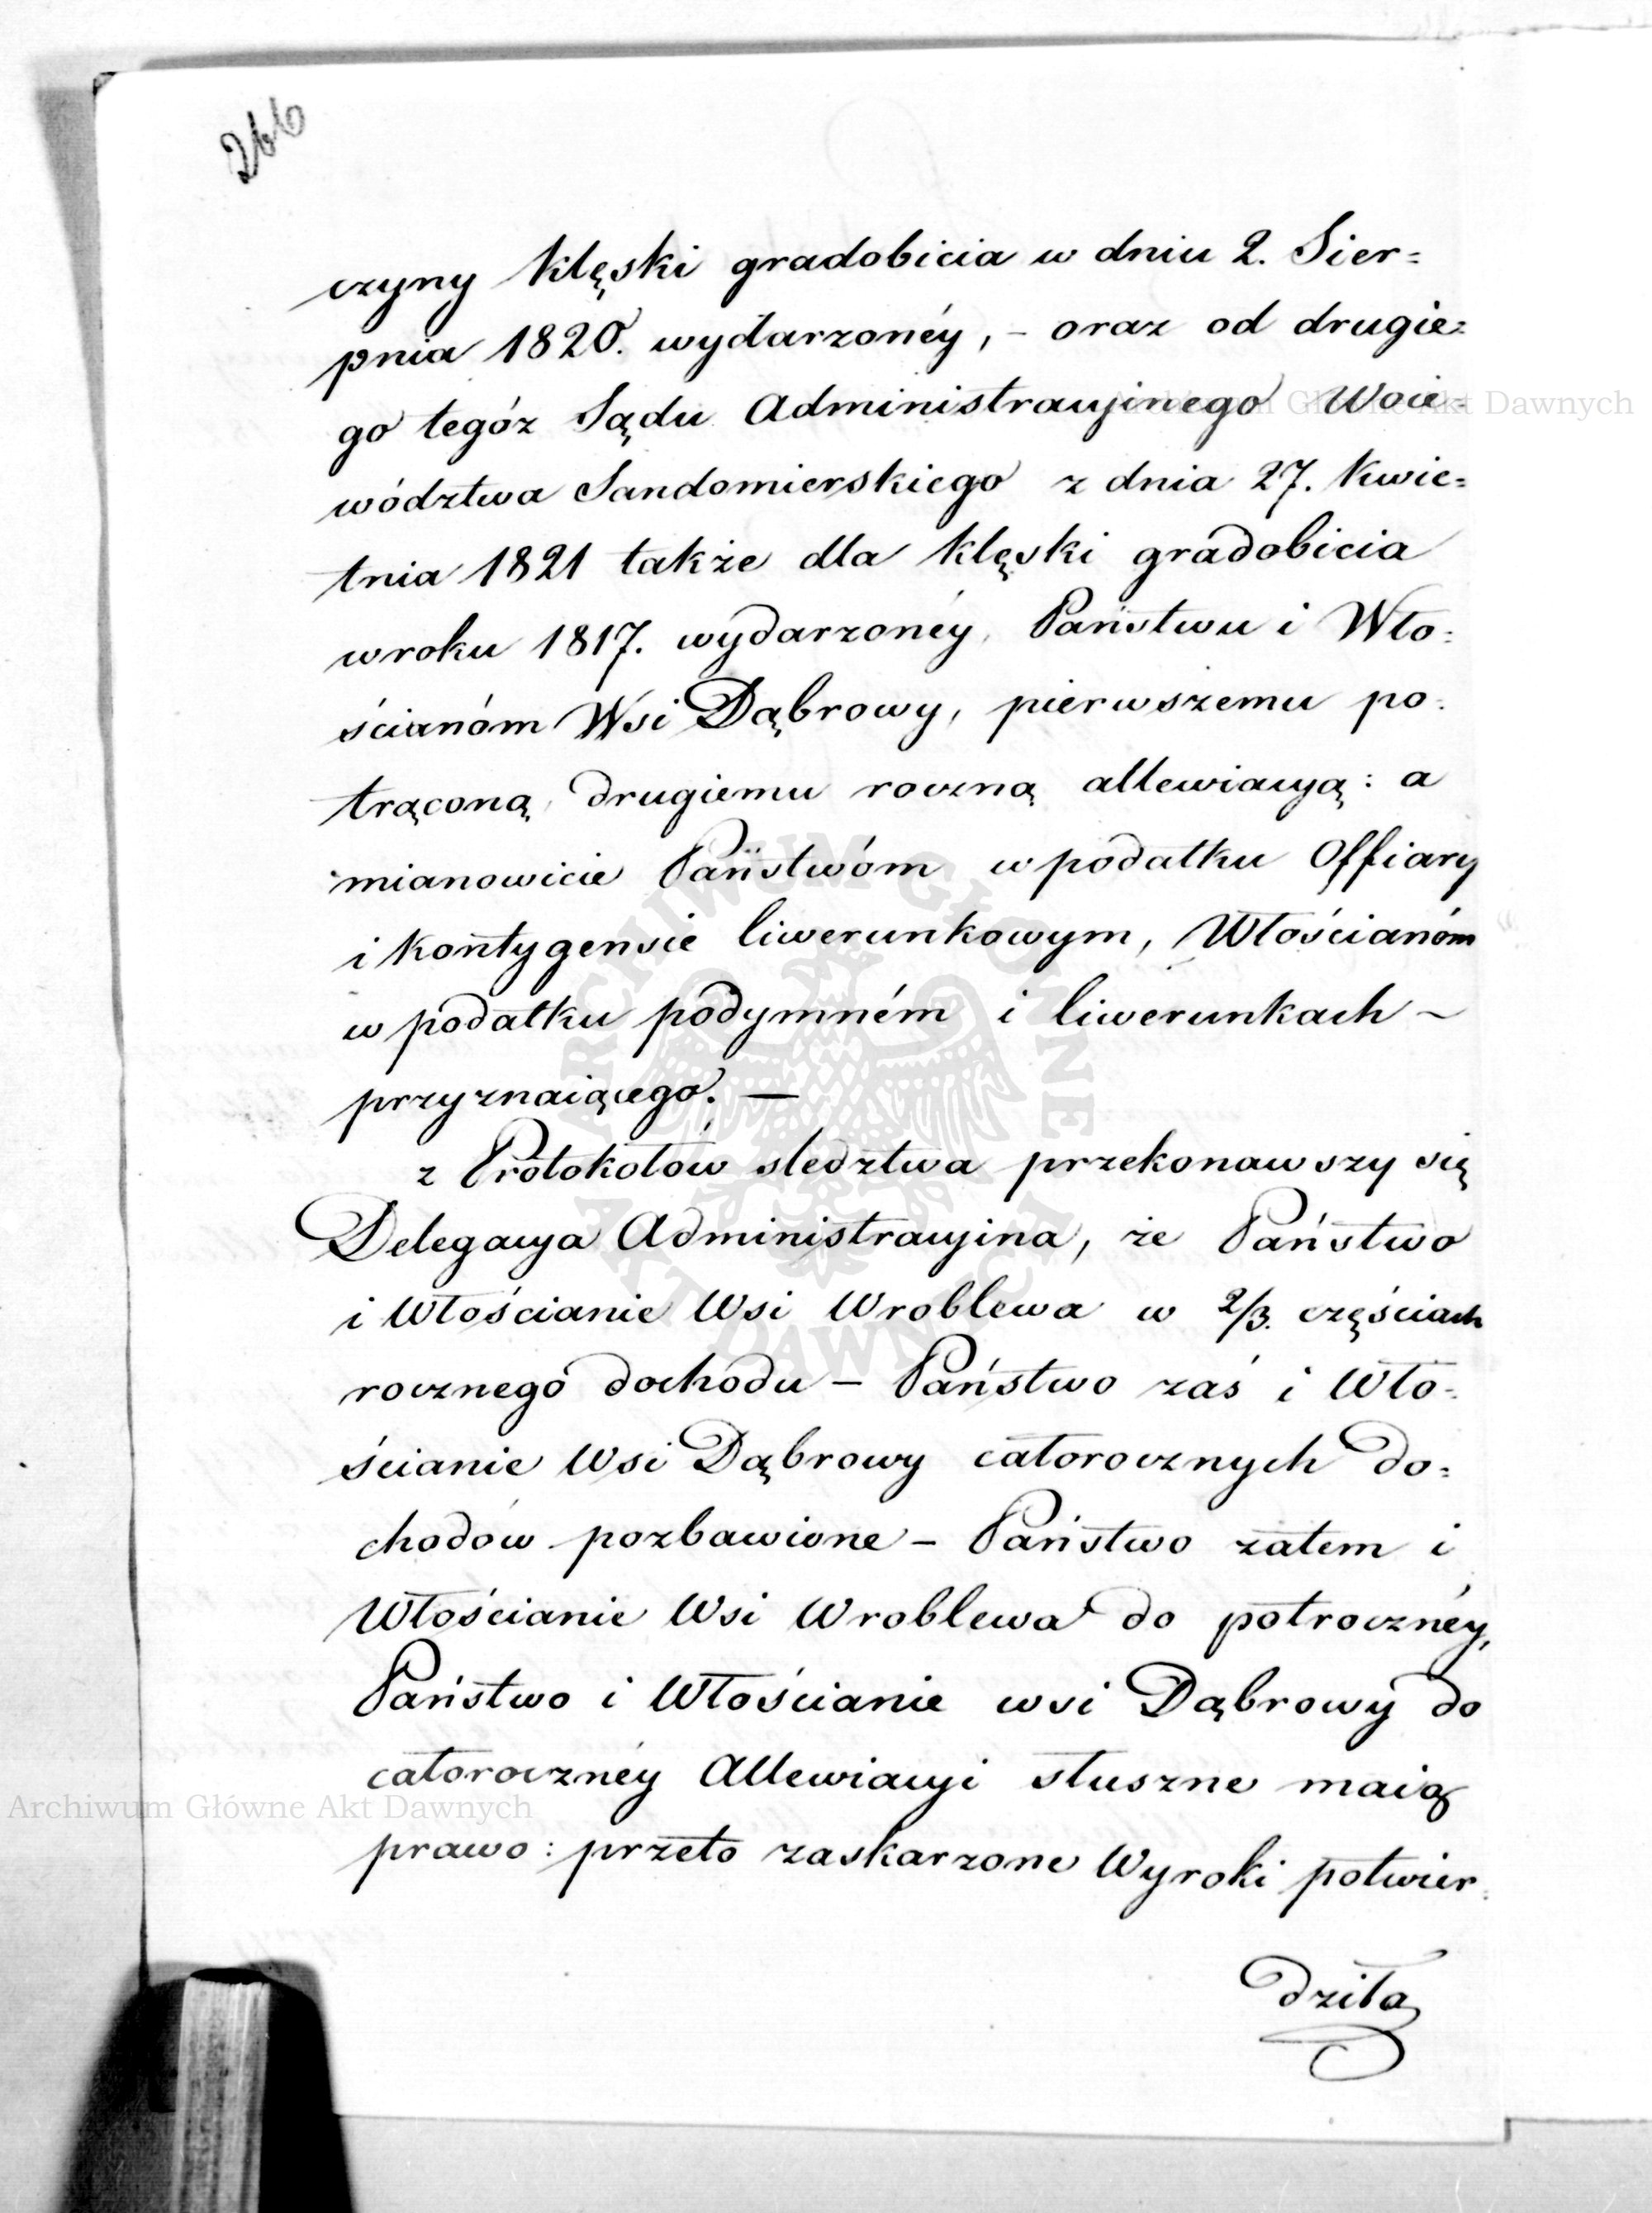 266
czyny klęski gradobicia w dniu 2. Sier=
pnia 1820. wydarzonéy, – oraz od drugie=
go tegóż Sądu Administracyjnego Woie=
wództwa Sandomierskiego z dnia 27. Kwie=
tnia 1821 także dla klęski gradobicia
w roku 1817. wydarzonéy, Państwu i Wło=
ścianóm Wsi Dąbrowy, pierwszemu po=
trąconą, drugiemu roczną allewiacyą: a
mianowicie Państwóm w podatku Offiary
i kontygensie liwerunkowym, Włościanóm
w podatku podymném i liwerunkach –
przyznaiącego. —
z Protokołów sledztwa przekonawszy się
Delegacya Administracyjna, że Państwo
i Włościanie Wsi Wroblewa w 2/3. częściach
rocznego dochodu – Państwo zaś i Wło=
ścianie Wsi Dąbrowy całorocznych do=
chodów pozbawione – Państwo zatem i
Włościanie Wsi Wroblewa do potrocznéy,
Państwo i Włościanie wsi Dąbrowy do
całorocznéy Allewiacyi słuszne maią
prawo: przeto zaskarzone Wyroki potwier=
dziła
Archiwum Główne Akt Dawnych
Archiwum Główne Akt Dawnych
ARCHIWUM GŁÓWNE AKT DAWNYCH